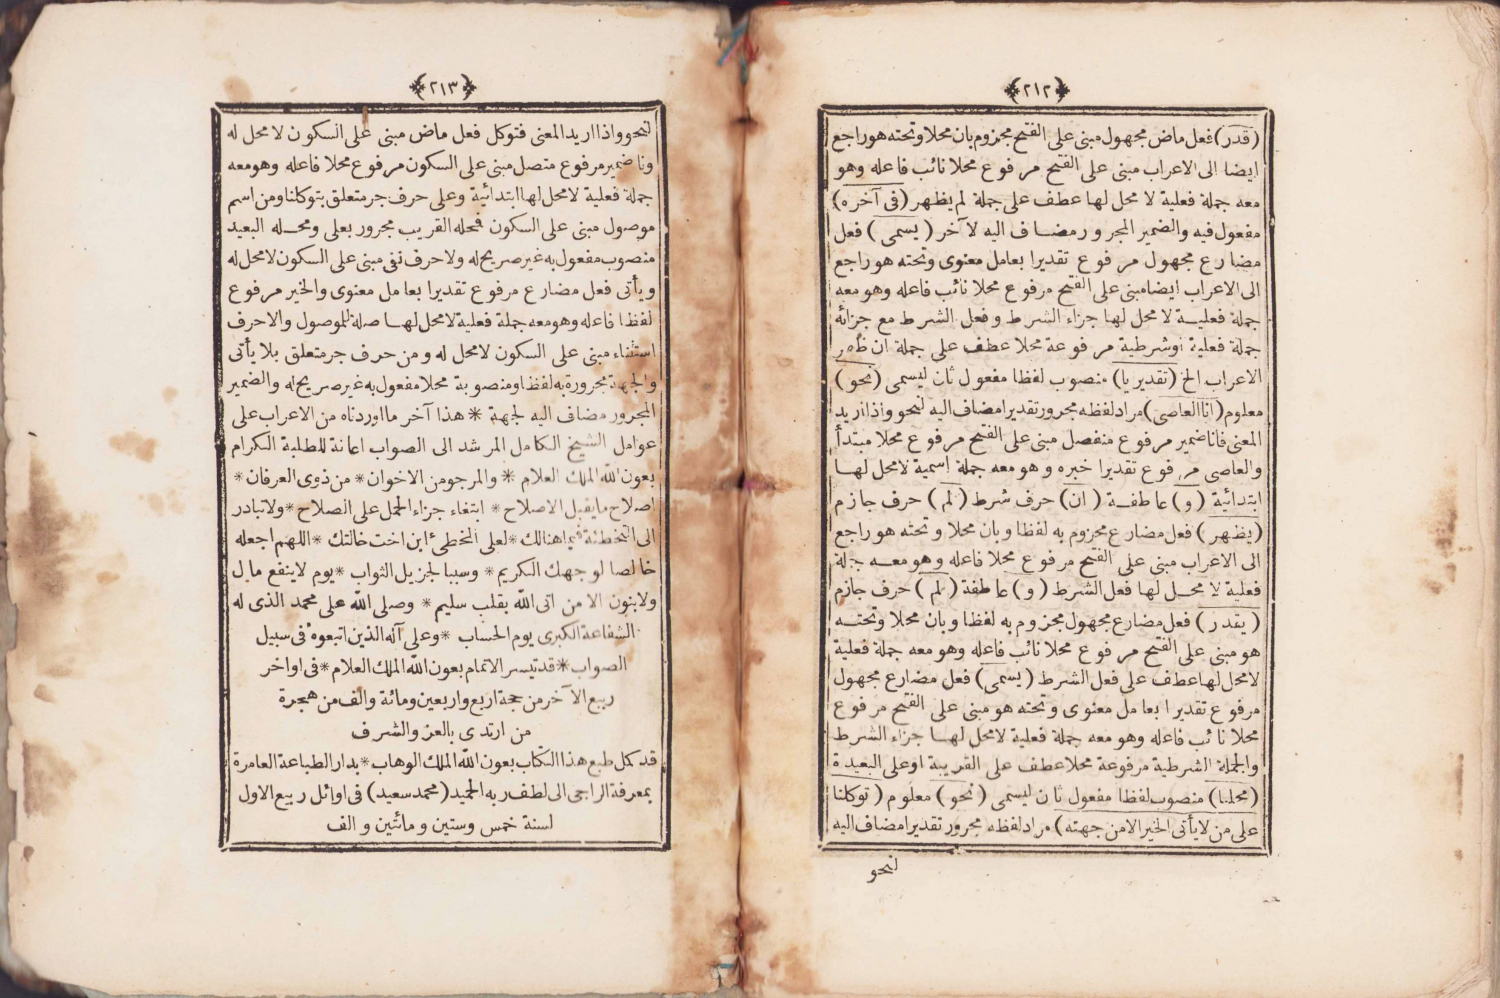 ﴿٢١٢﴾
(قدر) فعل ماض مجهول مبنى على الفتح مجزوم بان محلا وتحته هو راجع
ايضا الى الاعراب مبنى على الفتح مرفوع محلا نائب فاعله وهو
معه جملة فعلية لا محل لها عطف على جملة لم يظهر (فى آخره)
مفعول فيه والضمير المجرور مضاف اليه لآخر (يسمى) فعل
مضارع مجهول مرفوع تقديرا بعامل معنوى وتحته هو راجع
الى الاعراب ايضا مبنى على الفتح مرفوع محلا نائب فاعله وهو معه
جملة فعلية لا محل لها جزاء الشرط وفعل الشرط مع جزائه
جملة فعلية او شرطية مرفوعة محلا عطف على جملة ان ظهر
الاعراب الخ (تقديريا) منصوب لفظا مفعول ثان ليسمى (نحو)
معلوم (انا العاصى) مراد لفظه مجرور تقديرا مضاف اليه لنحو واذا اريد
المعنى فانا ضمير مرفوع منفصل مبنى على الفتح مرفوع محلا مبتدأ
والعاصى مرفوع تقديرا خبره وهو معه جملة اسمية لا محل لها
ابتدائية (و) عاطفة (ان) حرف شرط (لم) حرف جازم
(يظهر) فعل مضارع مجزوم به لفظا وبان محلا وتحته هو راجع
الى الاعراب مبنى على الفتح مرفوع محلا فاعله وهو معه جملة
فعلية لا محل لها فعل الشرط (و) عاطفة (لم) حرف جازم
(يقدر) فعل مضارع مجهول مجزوم به لفظا وبان محلا وتحته
هو مبنى على الفتح مرفوع محلا نائب فاعله وهو معه جملة فعلية
لا محل لها عطف على فعل الشرط (يسمى) فعل مضارع مجهول
مرفوع تقديرا بعامل معنوى وتحته هو مبنى على الفتح مرفوع
محلا نائب فاعله وهو معه جملة فعلية لا محل لها جزاء الشرط
والجملة الشرطية مرفوعة محلا عطف على القريبة او على البعيدة
(محليا) منصوب لفظا مفعول ثان ليسمى (نحو) معلوم (توكلنا
على من لا يأتى الخير الا من جهته) مراد لفظه مجرور تقديرا مضاف اليه
لنحو
﴿٢١٣﴾
لنحو واذا اريد المعنى فتوكل فعل ماض مبنى على السكون لا محل له
ونا ضمير مرفوع متصل مبنى على السكون مرفوع محلا فاعله وهو معه
جملة فعلية لا محل لها ابتدائية وعلى حرف جر متعلق بتوكلنا ومن اسم
موصول مبنى على السكون فمحله القريب مجرور بعلى ومحله البعيد
منصوب مفعول به غير صريح له ولا حرف نفى مبنى على السكون لا محل له
ويأتى فعل مضارع مرفوع تقديرا بعامل معنوى والخير مرفوع
لفظا فاعله وهو معه جملة فعلية لا محل لها صلة للموصول والا حرف
استثناء مبنى على السكون لا محل له ومن حرف جر متعلق بلا يأتى
والجهة مجرورة به لفظا ومنصوبة محلا مفعول به غير صريح له والضمير
المجرور مضاف اليه لجهة * هذا آخر ما اوردناه من الاعراب على
عوامل الشيخ الكامل المرشد الى الصواب اعانة للطلبة الكرام
بعون الله الملك العلام * والمرجو من الاخوان * من ذوى العرفان *
اصلاح ما يقبل الاصلاح * ابتغاء جزاء الحمل على الصلاح * ولا تبادر
الى التخطئة فيما هنالك * لعل المخطئ ابن اخت خالتك * اللهم اجعله
خالصا لوجهك الكريم * وسببا لجزيل الثواب * يوم لا ينفع مال
ولا بنون الا من اتى الله بقلب سليم * وصلى الله على محمد الذى له
الشفاعة الكبرى يوم الحساب * وعلى آله الذين اتبعوه فى سبيل
الصواب * قد تيسر الاتمام بعون الله الملك العلام * فى اواخر
ربيع الآخر من حجة اربع واربعين ومائة والف من هجرة
من ارتدى بالعز والشرف
قد كمل طبع هذا الكتاب بعون الله الملك الوهاب * بدار الطباعة العامرة
بمعرفة الراجى الى لطف ربه الحميد (محمد سعيد) فى اوائل ربيع الاول
لسنة خمس وستين ومائتين والف